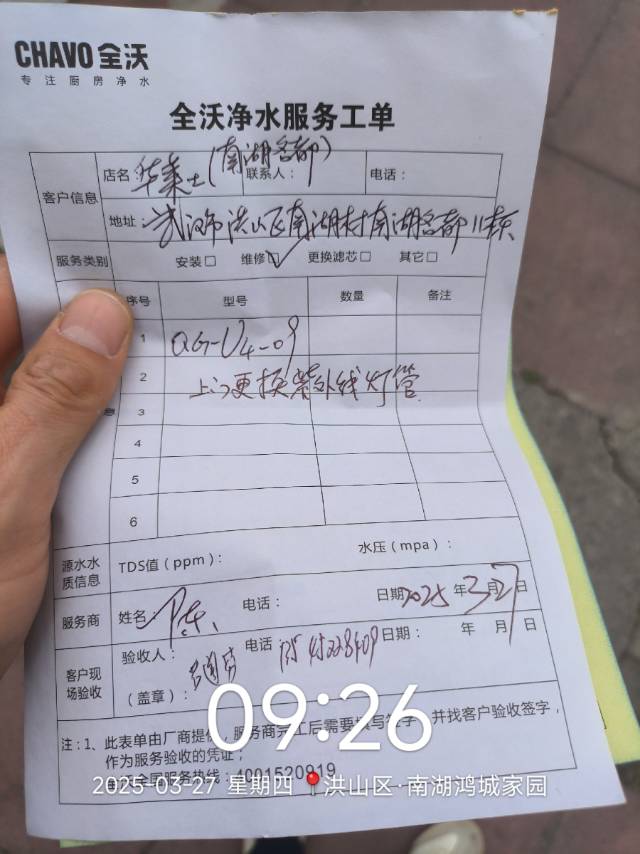 CHAVO 全沃
专注厨房净水
全沃净水服务工单
客户信息 店名 华莱士(南湖名都) 联系人: 电话:
地址: 武汉市洪山区南湖村南湖名都11栋
服务类别 安装□ 维修☑ 更换滤芯□ 其它□
序号 型号 数量 备注
1 QG-U4-09
2 上门更换紫外线灯管
3
4
5
6
源水水质信息 TDS值(ppm): 水压(mpa):
服务商 姓名 电话: 日期 2025年3月27日
客户现场验收 验收人: 电话 日期: 年 月 日
(盖章):
注:1、此表单由厂商提供,服务商完工后需要填写签字,并找客户验收签字,
作为服务验收的凭证;
全国服务热线:4001520919
09:26
2025-03-27 星期四 洪山区·南湖鸿城家园